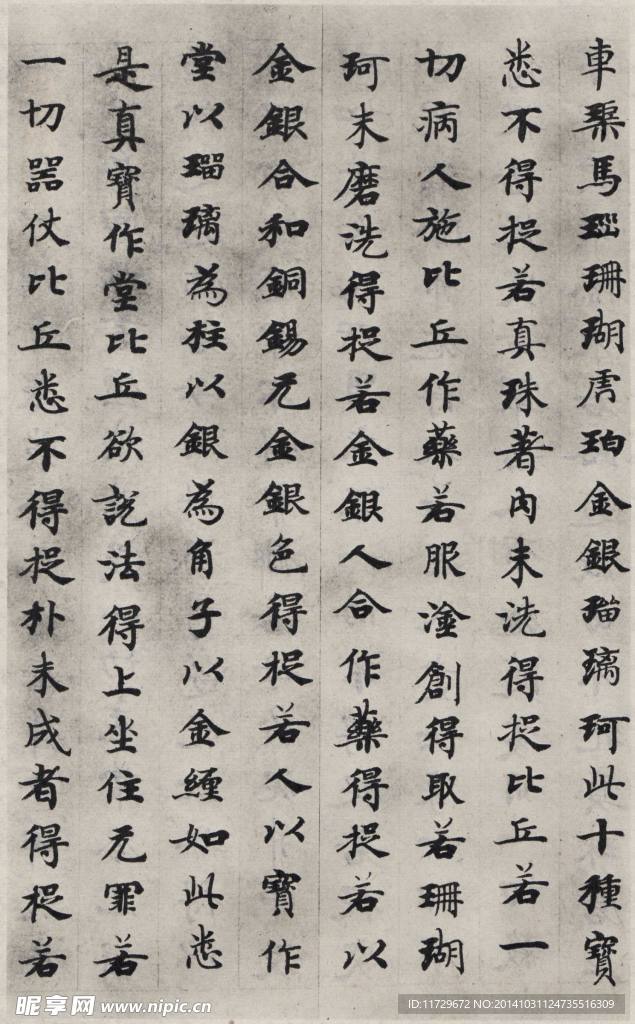 車璖馬瑙珊瑚虎珀金銀瑠璃珂此十種寶
悉不得捉若真珠著内未洗得捉比丘若一
切病人施比丘作藥若服塗創得取若珊瑚
珂未磨洗得捉若金銀人合作藥得捉若以
金銀合和銅錫无金銀色得捉若人以寶作
堂以瑠璃為柱以銀為角子以金縷如此悉
是真寶作堂比丘欲說法得上坐住无罪若
一切器仗比丘悉不得捉朴未成者得捉若
昵享网 www.nipic.cn
ID:11729672 NO:20141031124735516309